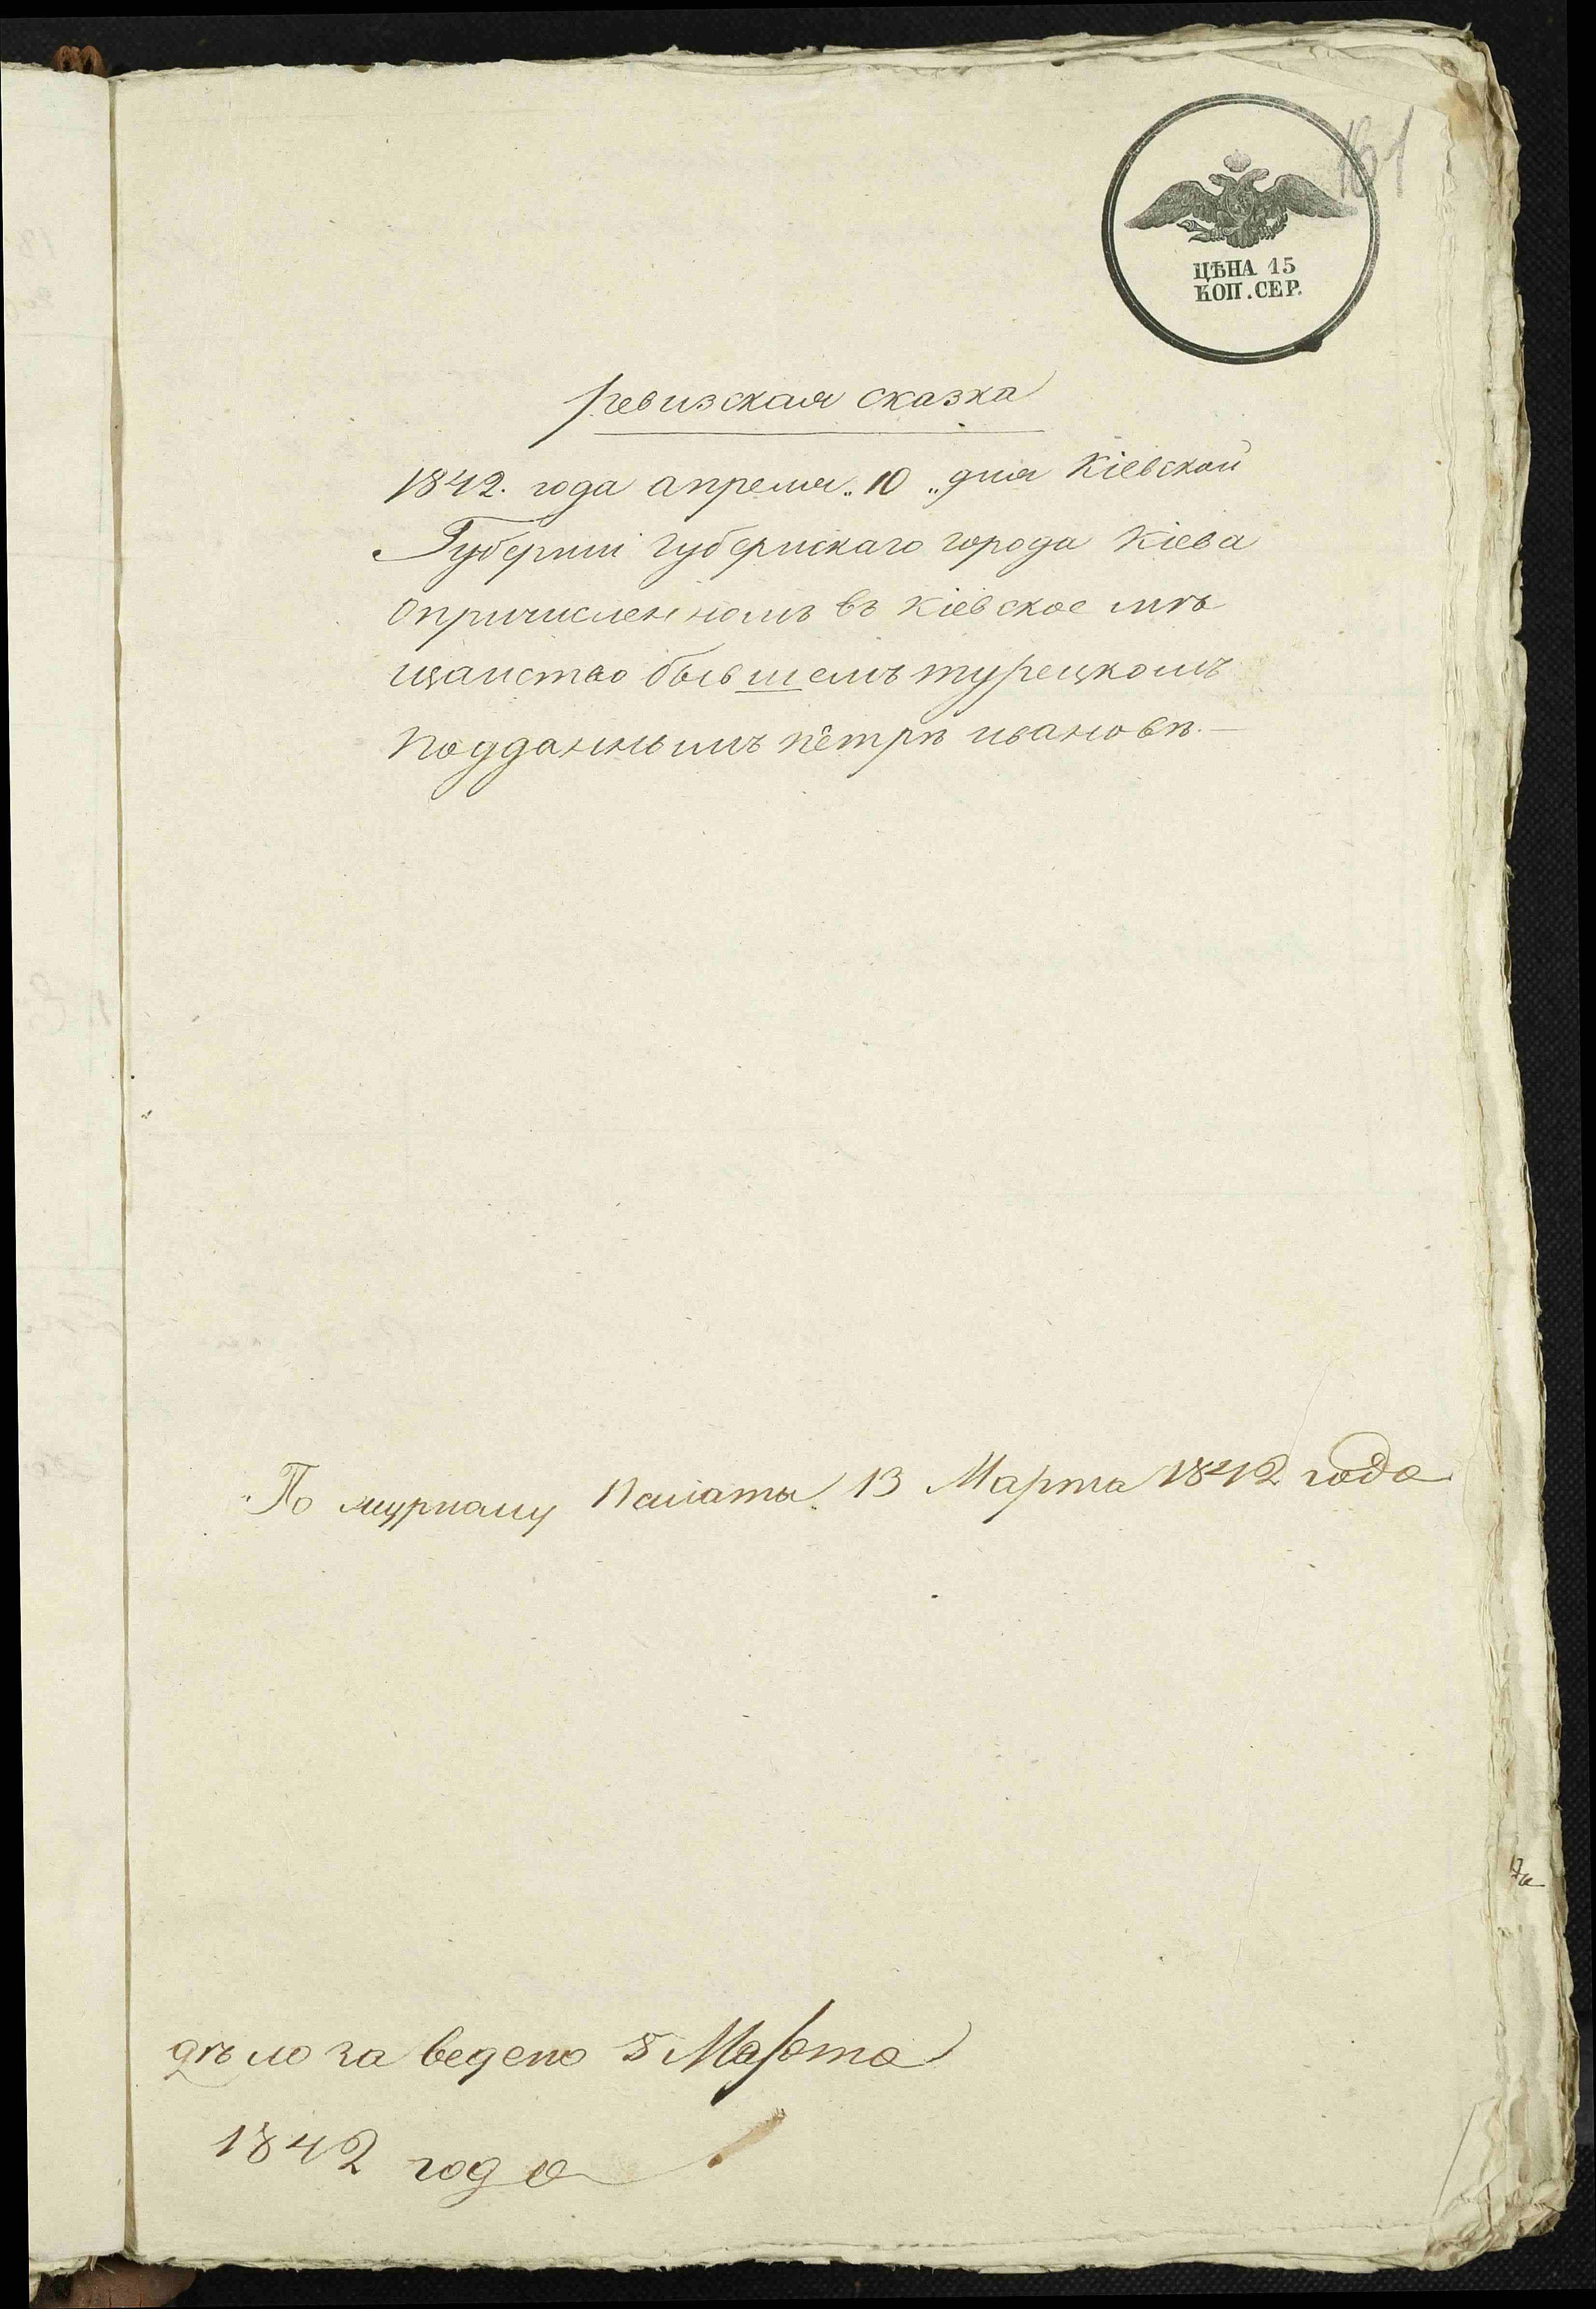 161
ЦѢНА 15
КОП. СЕР.
ревизская сказка
1842. года апреля „10„ дня Кіевской
Губерніи губернскаго города Кіева
опричисленномъ въ Кіевское мѣ
щанство бывшемъ турецкомъ
подданнымъ пётрѣ ивановѣ. —
По журналу Палаты 13 Марта 1842 года
дѣло заведено 8 Марта
1842 года